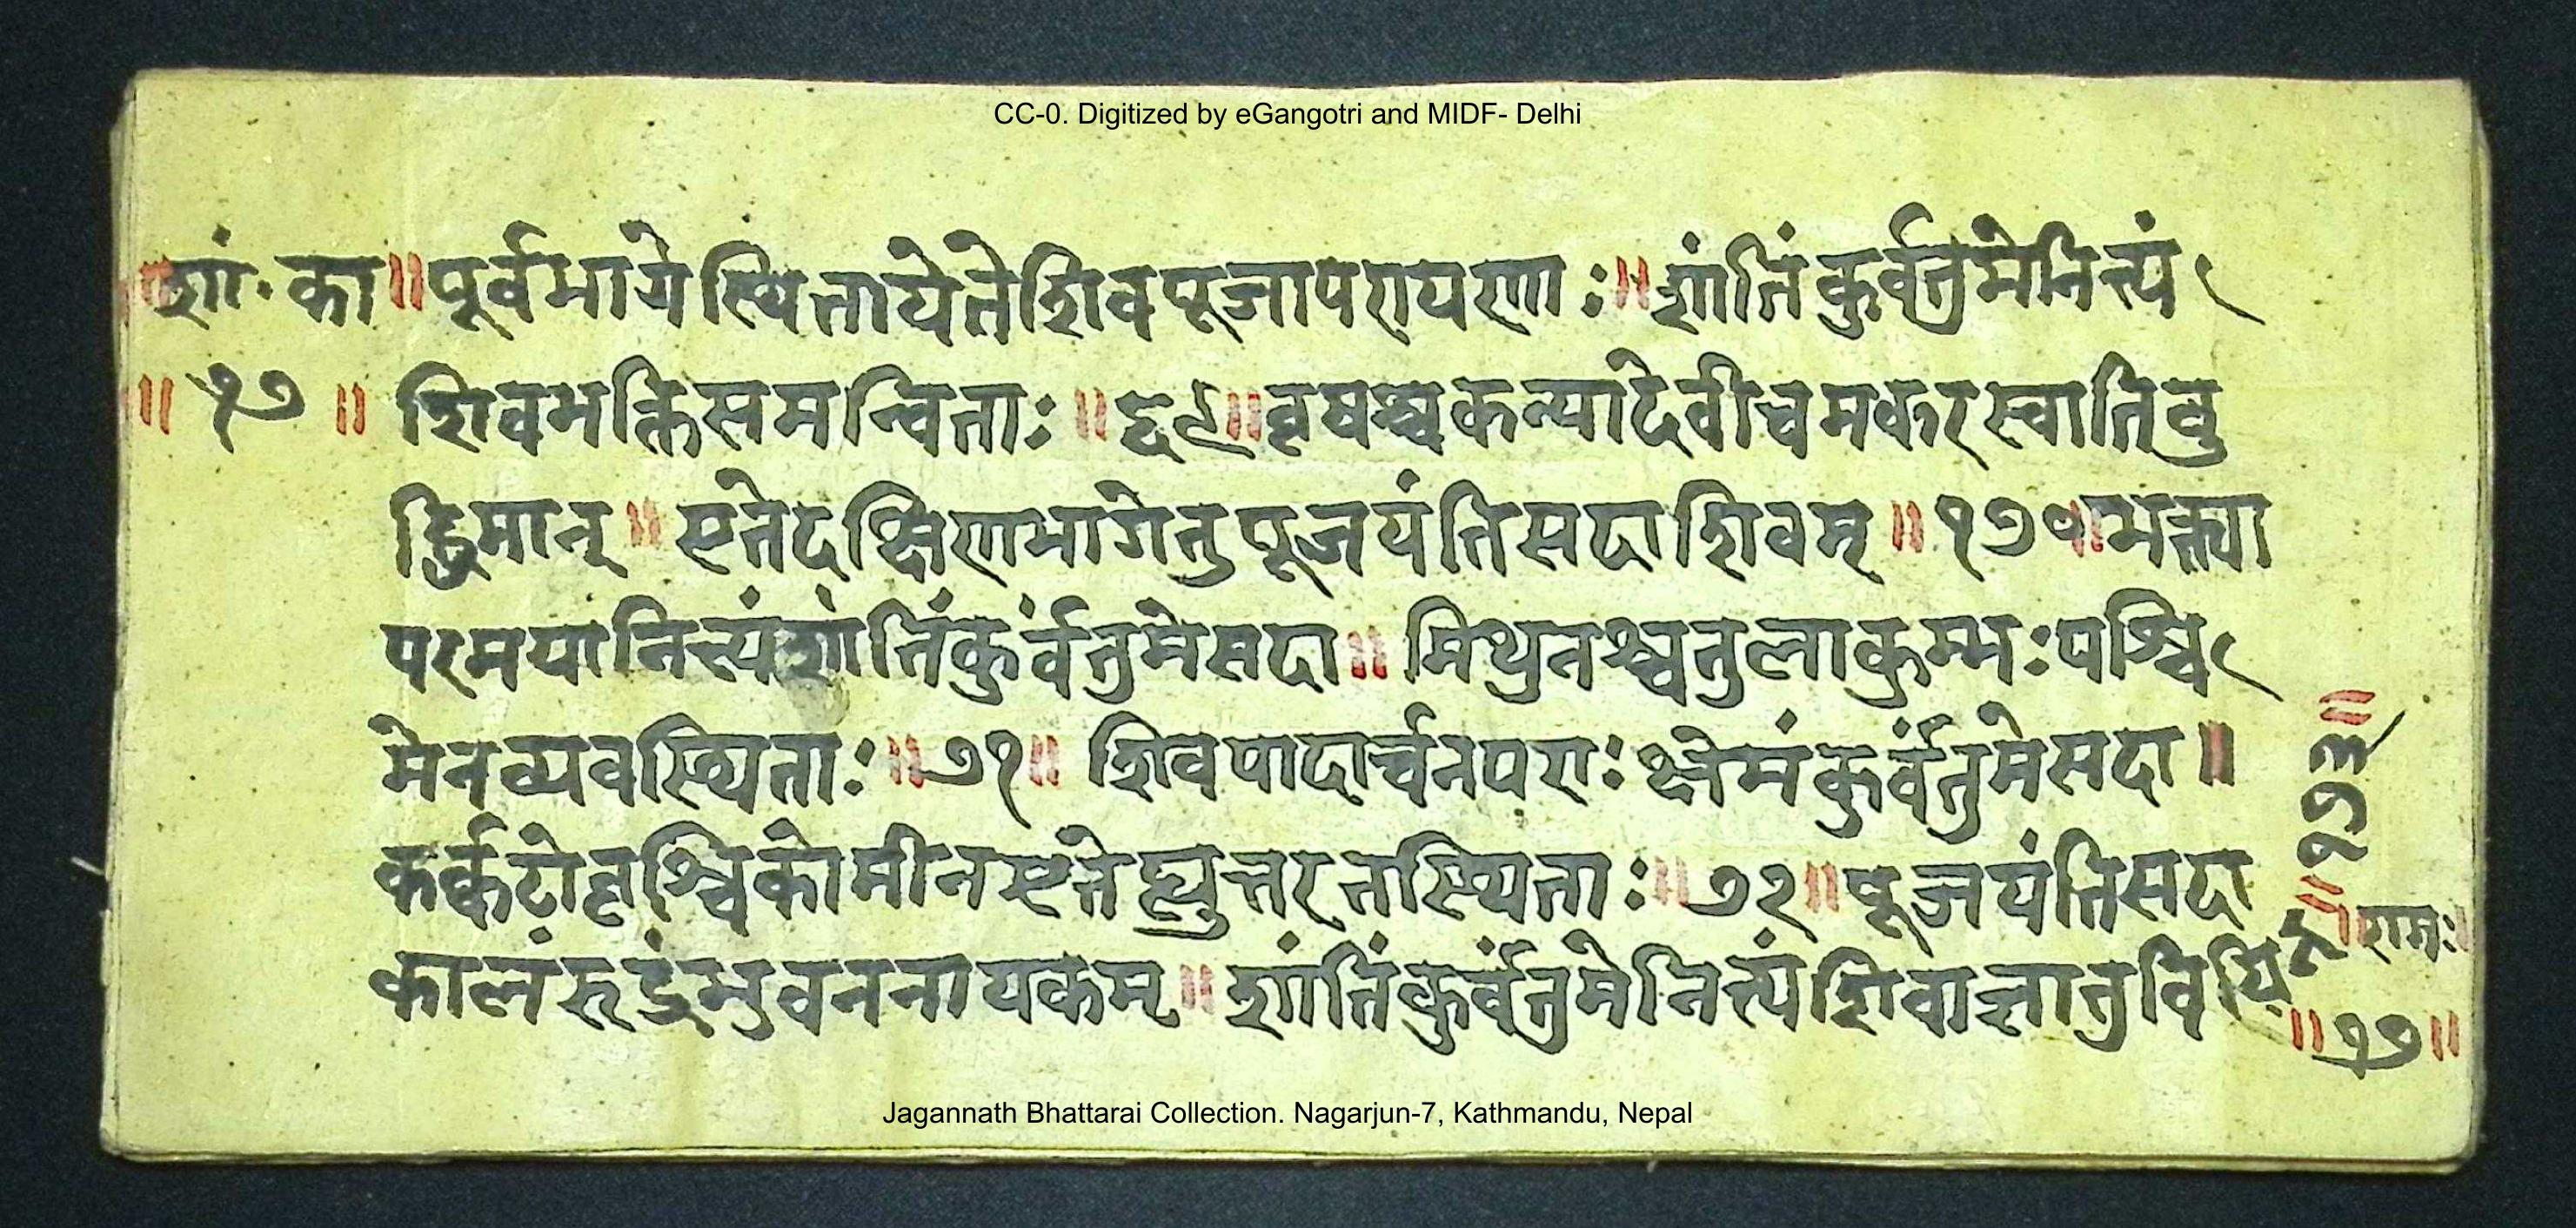 CC-0. Digitized by eGangotri and MIDF- Delhi
॥शां. का॥पूर्वभागेस्थितायेतेशिवपूजापरायणाः॥शांतिंकुर्वंतुमेनित्यं
॥१७॥ शिवभक्तिसमन्विताः॥६९॥वृषश्चकन्यादेवीचमकरस्वातिबु
द्धिमान्॥एतेदक्षिणभागेतुपूजयंतिसदाशिवम्॥१७०॥भक्त्या
परमयानित्यंशांतिंकुर्वंतुमेसदा॥मिथुनश्चतुलाकुम्भःपश्चि
मेनव्यवस्थिताः॥७१॥शिवपादार्चनपराःक्षेमंकुर्वंतुमेसदा॥
कर्कटोवृश्चिकोमीनएतेह्युत्तरतस्थिताः॥७२॥पूजयंतिसदा
कालंरूद्रंभुवननायकम्॥शांतिंकुर्वंतुमेनित्यंशिवाज्ञानुविधि
न॥१७३॥
॥रामः॥
॥१७॥
Jagannath Bhattarai Collection. Nagarjun-7, Kathmandu, Nepal